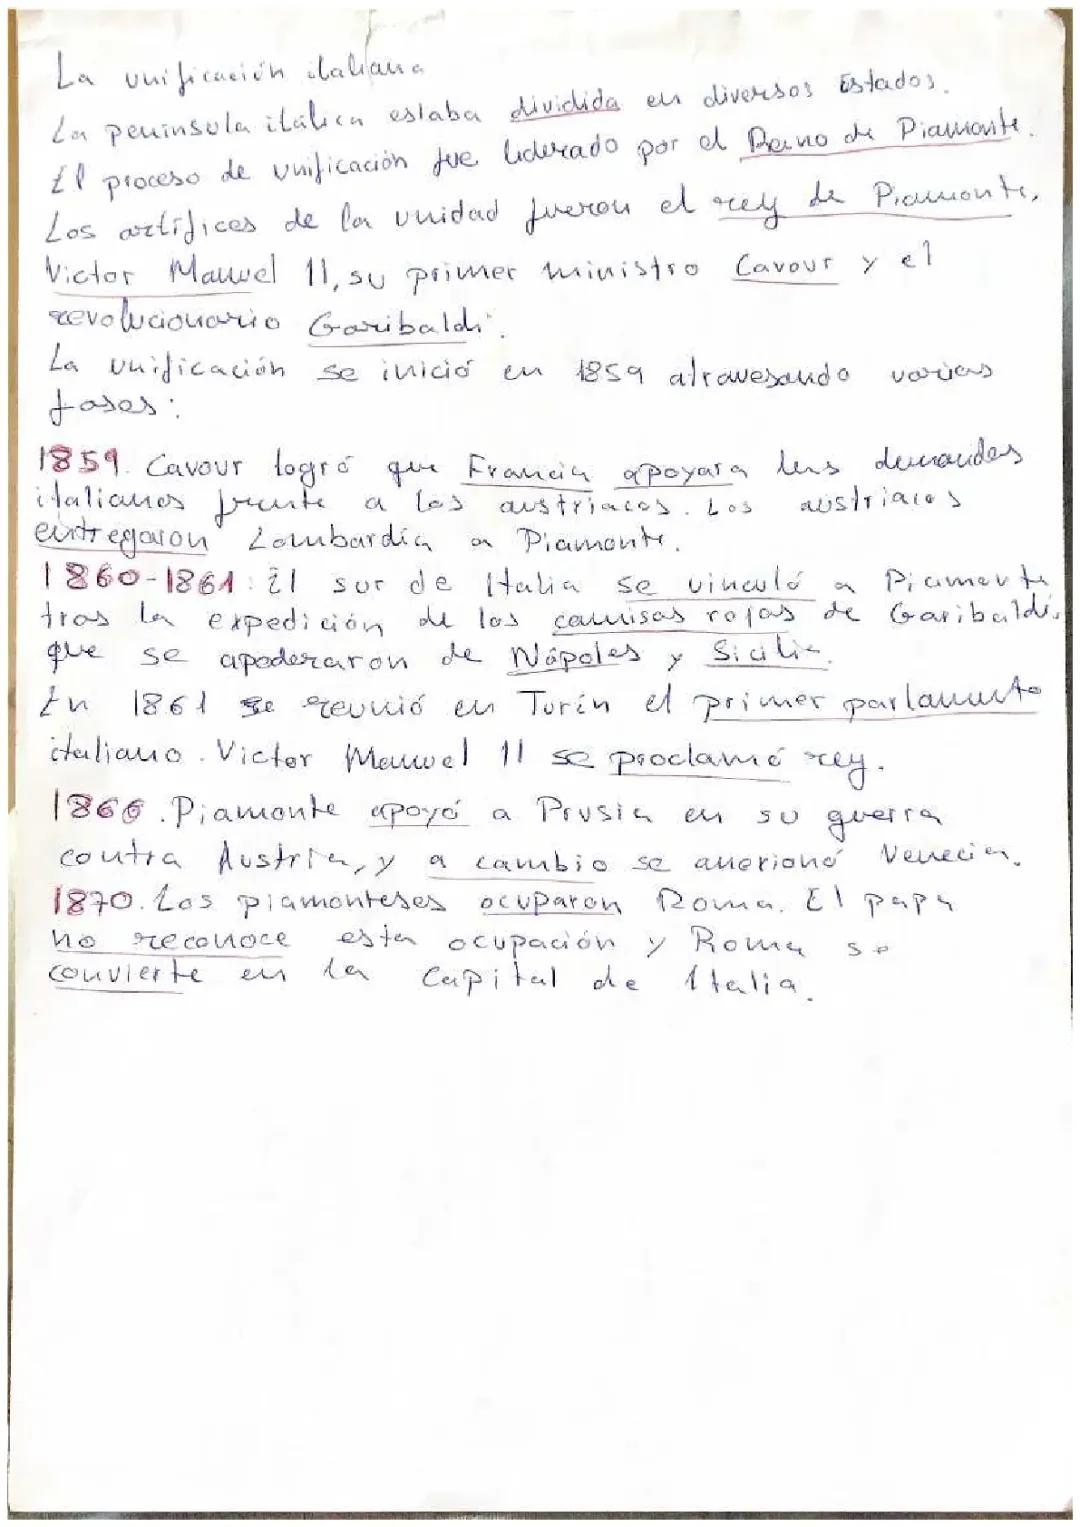 La unificación italiana
La península itálica estaba dividida en diversos Estados.
El proceso de unificación fue liderado por el Reino de Piamonte.
Los artífices de la unidad fueron el rey de Piamonte,
Victor Manuel II, su primer ministro Cavour y el
revolucionario Garibaldi.
La unificación se inició en 1859 atravesando varias
fases:
1859. Cavour logró que Francia apoyara las demandas
italianas frente a los austriacos. Los austriacos
entregaron Lombardía a Piamonte.
1860-1861: El sur de Italia se vinculó a Piamonte
tras la expedición de los camisas rojas de Garibaldi,
que se apoderaron de Nápoles y Sicilia.
En 1861 se reunió en Turín el primer parlamento
italiano. Victor Manuel II se proclamó rey.
1866. Piamonte apoyó a Prusia en su guerra
contra Austria, y a cambio se anexionó Venecia.
1870. Los piamonteses ocuparon Roma. El papa
no reconoce esta ocupación y Roma se
convierte en la Capital de Italia.